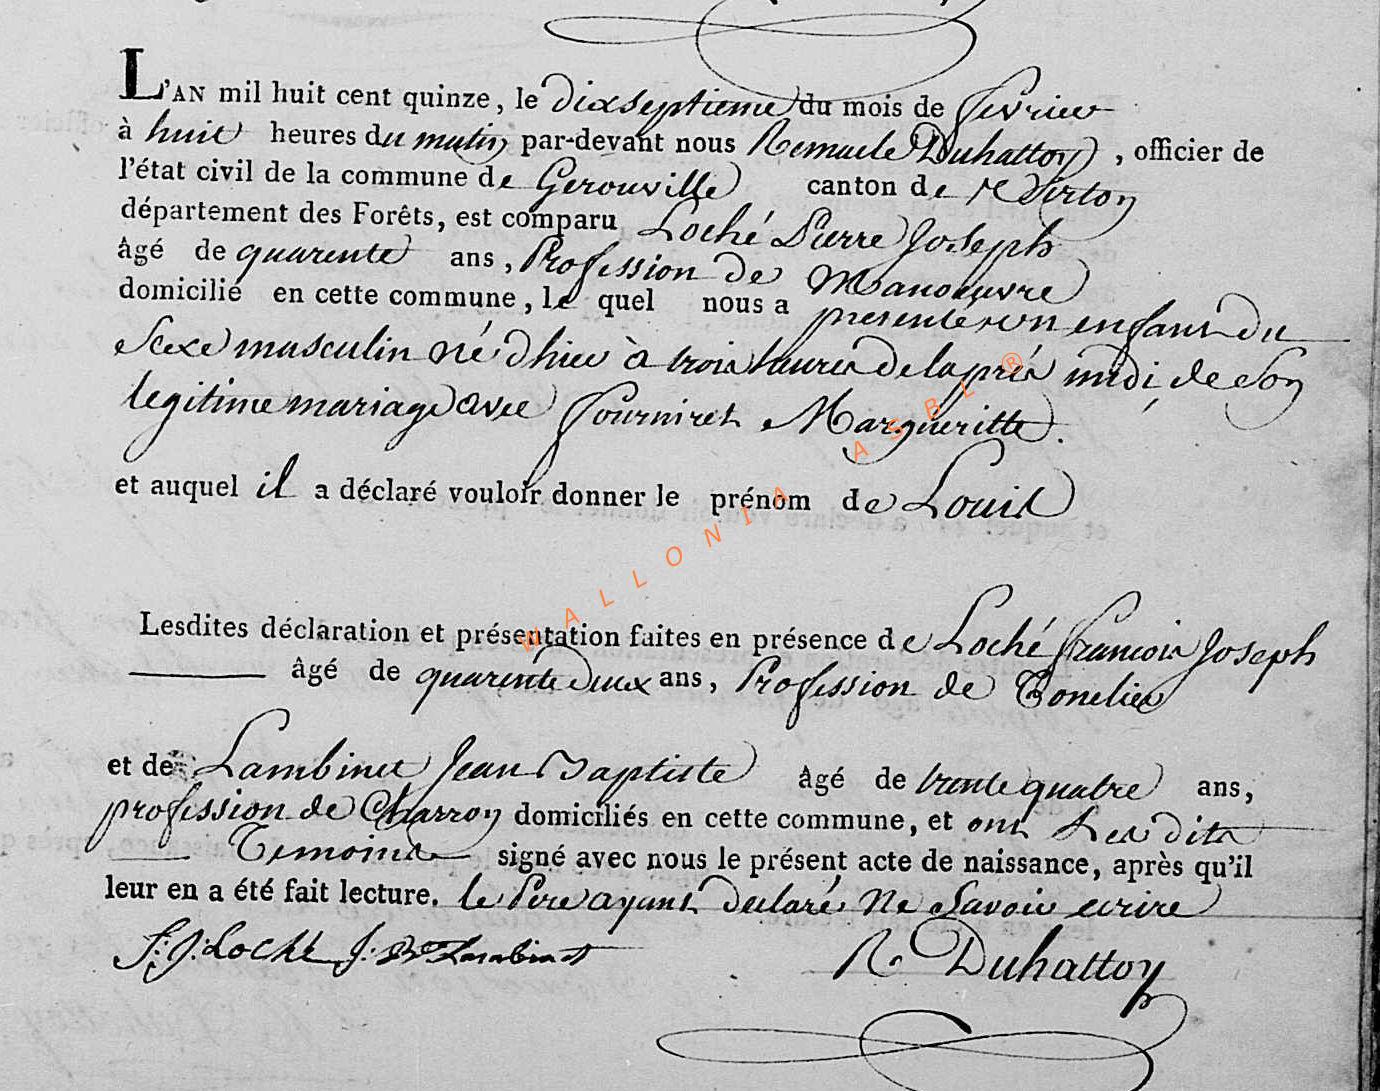 L'AN mil huit cent quinze, le dixseptieme du mois de fevrier
à huit heures du matin par-devant nous Remacle Duhattoy, officier de
l'état civil de la commune de Gerouville canton de Virton
département des Forêts, est comparu Loché Pierre Joseph
âgé de quarente ans, Profession de Manoeuvre
domicilié en cette commune, le quel nous a presenté un enfant du
Sexe masculin né d'hier à trois heures de laprés midi, de Son
legitime mariage avec fourniret Margueritte.
et auquel il a déclaré vouloir donner le prénom de Louis
Lesdites déclaration et présentation faites en présence de Loché francois Joseph
âgé de quarente deux ans, Profession de Tonelier
et de Lambinet Jean Baptiste âgé de trente quatre ans,
profession de Charron domiciliés en cette commune, et ont Les dits
Temoins signé avec nous le présent acte de naissance, après qu'il
leur en a été fait lecture. le Pere ayant declaré Ne Savoir ecrire
F. J. Loché J. Bte Lambinet R. Duhattoy
WALLONIA ASBL ®